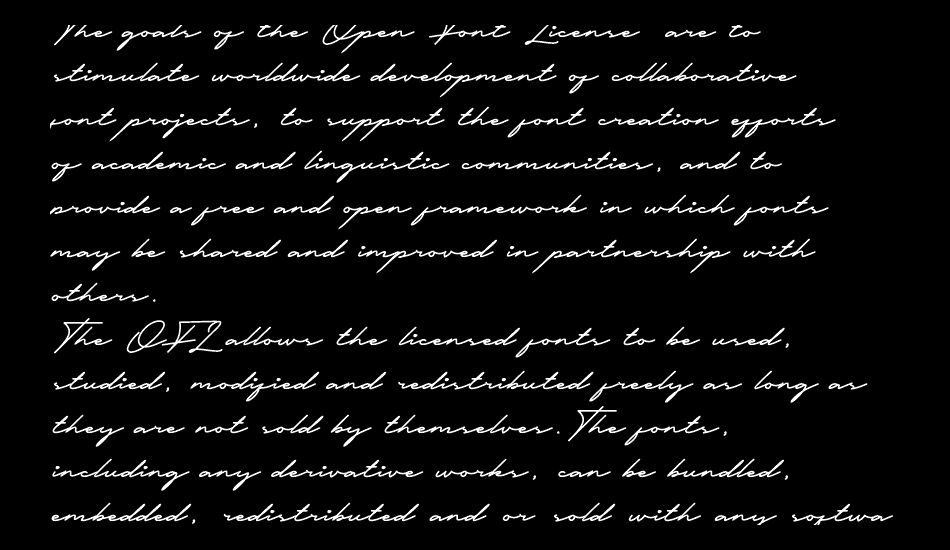 The goals of the Open Font License are to
stimulate worldwide development of collaborative
font projects, to support the font creation efforts
of academic and linguistic communities, and to
provide a free and open framework in which fonts
may be shared and improved in partnership with
others.
The OFL allows the licensed fonts to be used,
studied, modified and redistributed freely as long as
they are not sold by themselves. The fonts,
including any derivative works, can be bundled,
embedded, redistributed and or sold with any softwa